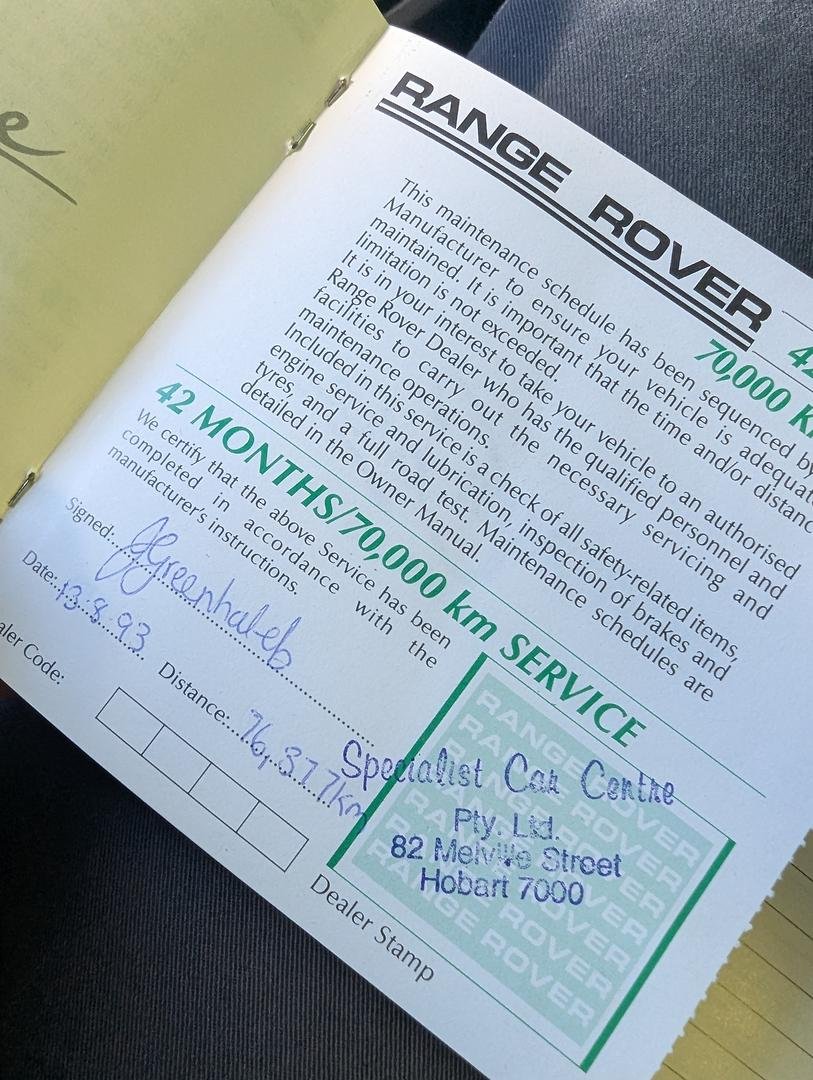 e
RANGE ROVER
This maintenance schedule has been sequenced by
Manufacturer to ensure your vehicle is adequat
maintained. It is important that the time and/or distanc
limitation is not exceeded.
It is in your interest to take your vehicle to an authorised
Range Rover Dealer who has the qualified personnel and
facilities to carry out the necessary servicing and
maintenance operations.
Included in this service is a check of all safety-related items,
engine service and lubrication, inspection of brakes and
tyres, and a full road test. Maintenance schedules are
detailed in the Owner Manual.
42
70,000 k
42 MONTHS/70,000 km SERVICE
We certify that the above Service has been
completed in accordance with the
manufacturer's instructions.
Signed:
Date: 13.8.93
Distance: 76,377km
aler Code:
RANGE ROVER
RANGE ROVER
RANGE ROVER
RANGE ROVER
RANGE ROVER
RANGE ROVER
RANGE ROVER
Specialist Car Centre
Pty. Ltd.
82 Melville Street
Hobart 7000
Dealer Stamp